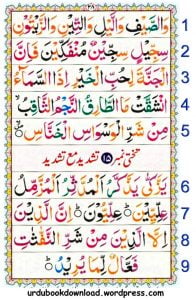 وَالصَّيْفِ وَالَّيْلِ وَالتِّيْنِ وَالزَّيْتُوْنِ 1
سِجِّيْلٍ سِجِّيْنٌ مُنْفَكِّيْنَ فَاِنَّ 2
الْجَنَّةَ لِحُبِّ الْخَيْرِ اِذَا السَّمَآءُ 3
انْشَقَّتْ مَا الطَّارِقُ النَّجْمُ الثَّاقِبُ 4
مِنْ شَرِّ الْوَسْوَاسِ الْخَنَّاسِ 5
تختی نمبر ۱۵ تشدید مع تشدید
يَزَّكّٰى يَذَّكَّرُ الْمُدَّثِّرُ الْمُزَّمِّلُ 6
عِلِّيِّيْنَ عِلِّيُّوْنَ اِنَّ الَّذِيْنَ 7
اِلَّا الَّذِيْنَ مِنْ شَرِّ النَّفّٰثٰتِ 8
فَعَّالٌ لِّمَا يُرِيْدُ 9
urdubookdownload.wordpress.com